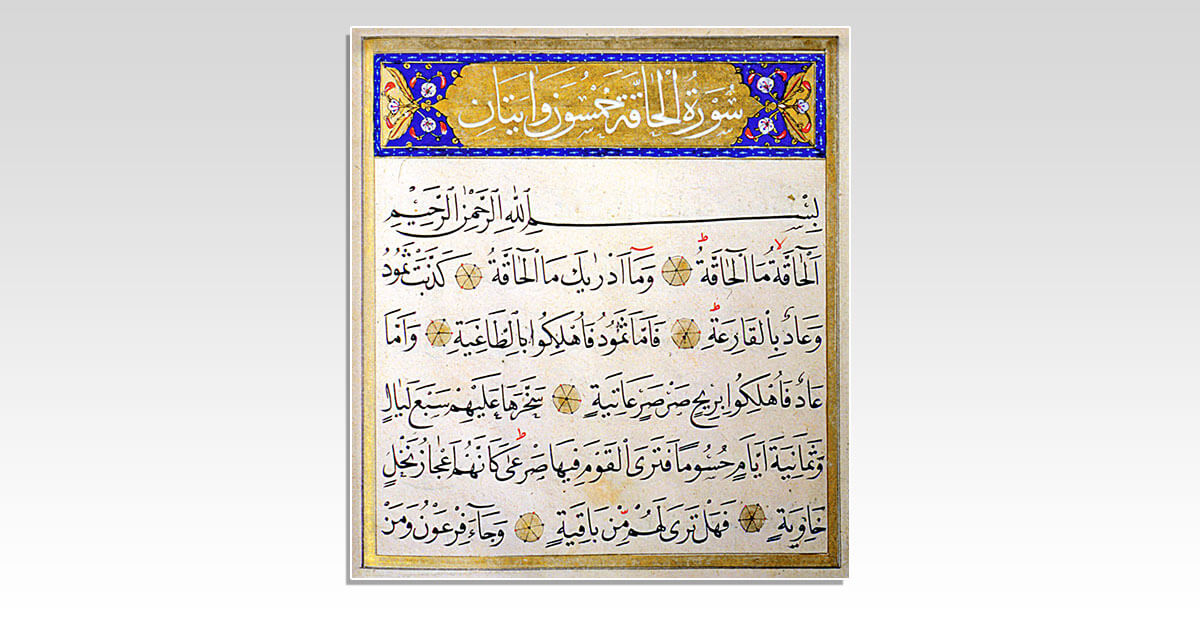 سُورَةُ الْحَاقَّةِ خَمْسُونَ وَاٰيَتَانِ
بِسْمِ اللّٰهِ الرَّحْمٰنِ الرَّحِيمِ
اَلْحَاقَّةُ ۙ مَا الْحَاقَّةُ ۚ وَمَٓا اَدْرٰيكَ مَا الْحَاقَّةُ كَذَّبَتْ ثَمُودُ
وَعَادٌ بِالْقَارِعَةِ فَاَمَّا ثَمُودُ فَاُهْلِكُوا بِالطَّاغِيَةِ وَاَمَّا
عَادٌ فَاُهْلِكُوا بِرِيحٍ صَرْصَرٍ عَاتِيَةٍ سَخَّرَهَا عَلَيْهِمْ سَبْعَ لَيَالٍ
وَثَمَانِيَةَ اَيَّامٍ حُسُومًا فَتَرَى الْقَوْمَ فِيهَا صَرْعٰى كَاَنَّهُمْ اَعْجَازُ نَخْلٍ
خَاوِيَةٍ فَهَلْ تَرٰى لَهُمْ مِنْ بَاقِيَةٍ وَجَٓاءَ فِرْعَوْنُ وَمَنْ